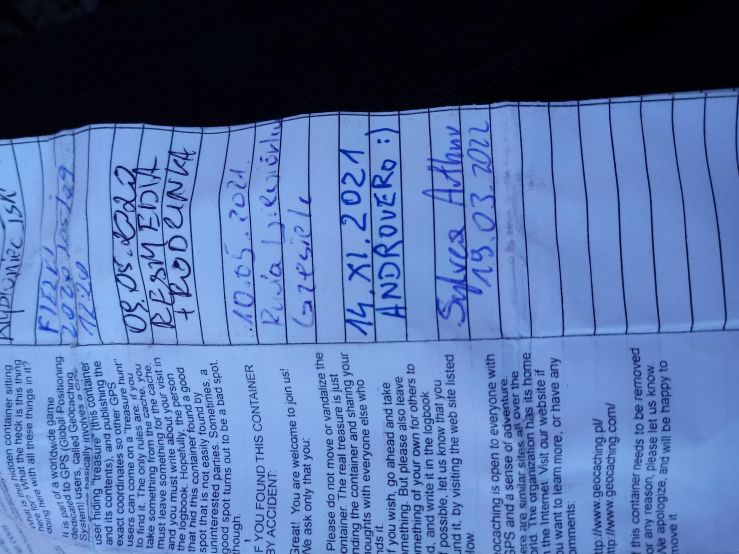 FIEREJ
12:20
09.05.2020
RESMEDIA
+ RODZINKA
10.05.2021.
14.XI.2021
ANDROVERO :)
Sylwia Arthur
19.03.2022
hidden container sitting
What the heck is this thing
here with all these things in it?
of a worldwide game
dedicated to GPS (Global Positioning
System) users, called Geocaching.
user hiding "treasure" (this container
and its contents), and publishing the
exact coordinates so other GPS
users can come on a "treasure hunt"
to find it. The only rules are: if you
take something from the cache, you
must leave something for the cache,
and you must write about your visit in
the logbook. Hopefully, the person
that hid this container found a good
spot that is not easily found by
uninterested parties. Sometimes, a
good spot turns out to be a bad spot,
though.
IF YOU FOUND THIS CONTAINER
BY ACCIDENT:
Great! You are welcome to join us!
We ask only that you:
Please do not move or vandalize the
container. The real treasure is just
finding the container and sharing your
thoughts with everyone else who
finds it.
If you wish, go ahead and take
something. But please also leave
something of your own for others to
find, and write it in the logbook.
If possible, let us know that you
found it, by visiting the web site listed
below
Geocaching is open to everyone with
GPS and a sense of adventure.
There are similar sites all over the
The organization has its home
on the Internet. Visit our website if
you want to learn more, or have any
comments:
http://www.geocaching.pl/
http://www.geocaching.com/
If this container needs to be removed
for any reason, please let us know.
We apologize, and will be happy to
move it.